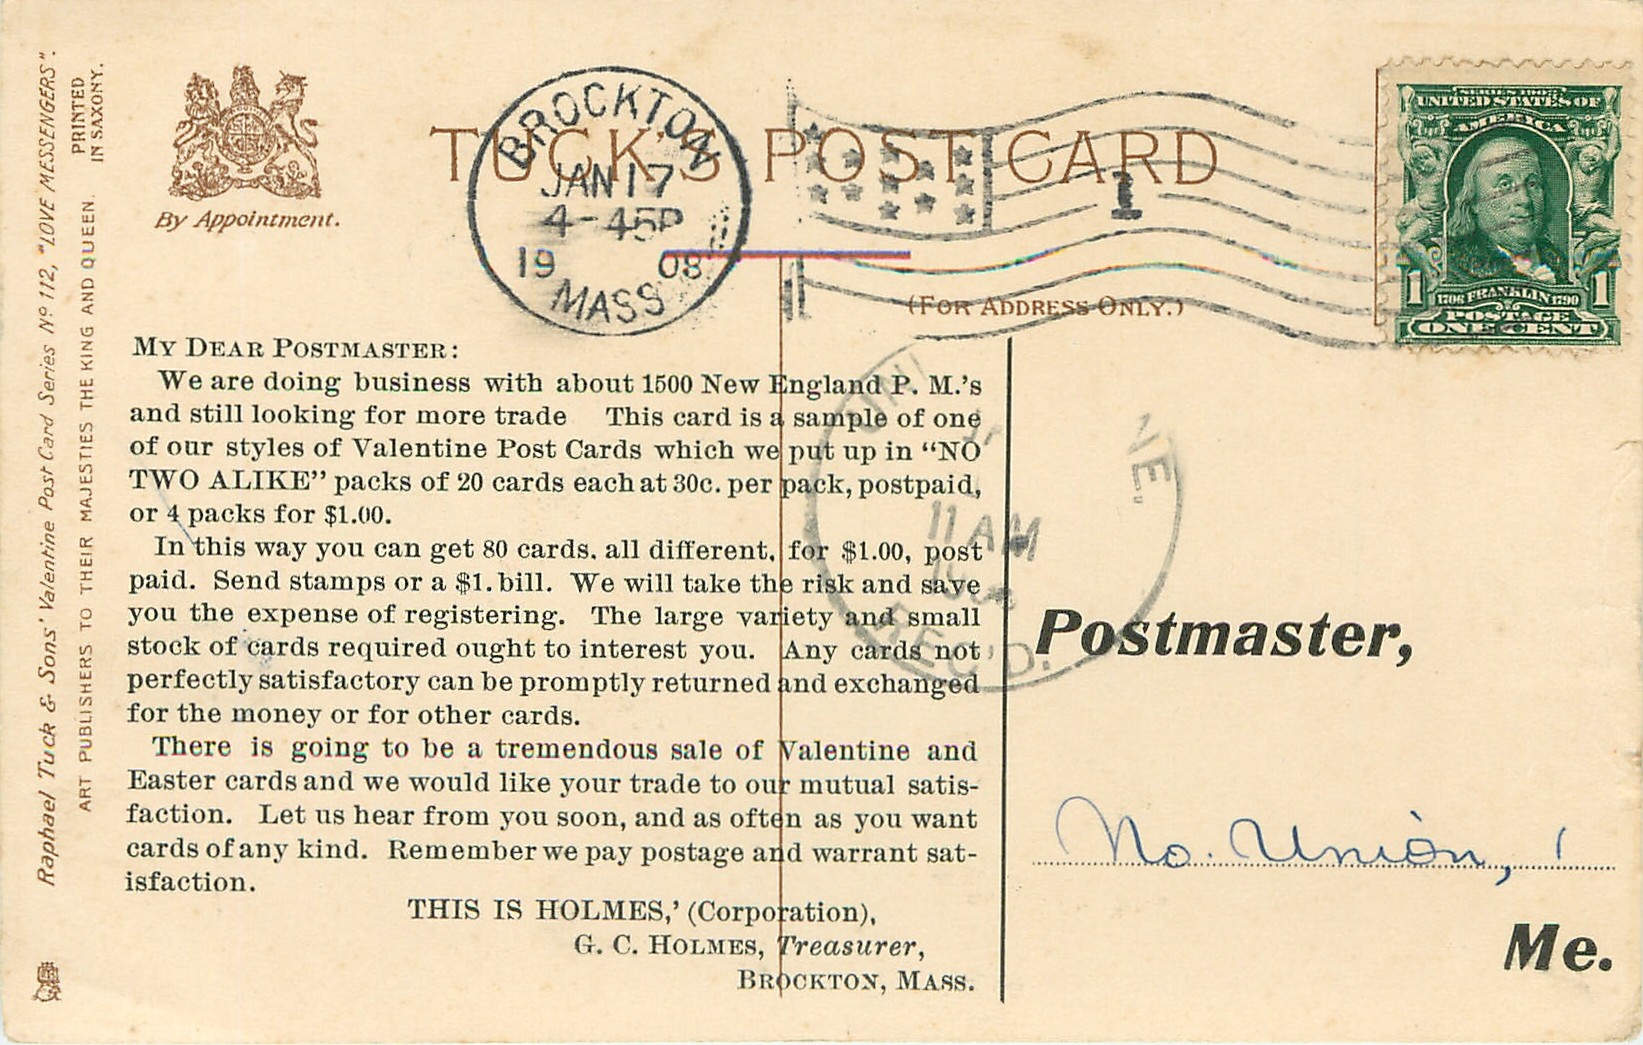 Raphael Tuck & Sons' Valentine Post Card Series Nº 112, "LOVE MESSENGERS".
PRINTED
IN SAXONY.
ART PUBLISHERS TO THEIR MAJESTIES THE KING AND QUEEN.
By Appointment.
TUCK'S POST CARD
BROCKTON
JAN 17
4-45P
19 08
MASS
1
SERIES 1902
UNITED STATES OF
AMERICA
1 1
1706 FRANKLIN 1790
POSTAGE
ONE CENT
(FOR ADDRESS ONLY.)
MY DEAR POSTMASTER:
We are doing business with about 1500 New England P. M.'s
and still looking for more trade This card is a sample of one
of our styles of Valentine Post Cards which we put up in "NO
TWO ALIKE" packs of 20 cards each at 30c. per pack, postpaid,
or 4 packs for $1.00.
In this way you can get 80 cards. all different, for $1.00, post
paid. Send stamps or a $1. bill. We will take the risk and save
you the expense of registering. The large variety and small
stock of cards required ought to interest you. Any cards not
perfectly satisfactory can be promptly returned and exchanged
for the money or for other cards.
There is going to be a tremendous sale of Valentine and
Easter cards and we would like your trade to our mutual satis-
faction. Let us hear from you soon, and as often as you want
cards of any kind. Remember we pay postage and warrant sat-
isfaction.
THIS IS HOLMES,' (Corporation),
G. C. HOLMES, Treasurer,
BROCKTON, MASS.
11 AM
REC'D.
Postmaster,
No. Union,
Me.